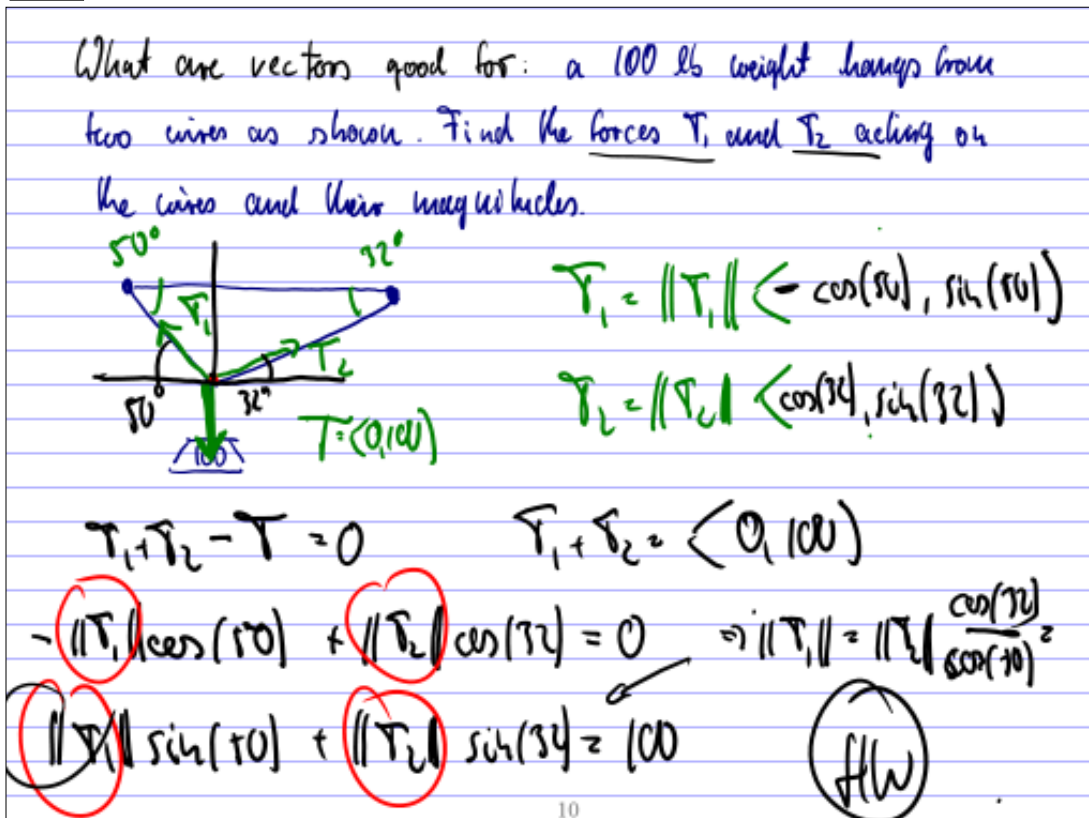 What are vectors good for: a 100 lb weight hangs from
two wires as shown. Find the forces T₁ and T₂ acting on
the wires and their magnitudes.
50° 32°
T₁ T₂
50° 32°
T=<0,100)
100
T₁ = ||T₁|| <- cos(50), sin(50))
T₂ = ||T₂|| <cos(32), sin(32))
T₁+T₂ - T = 0 T₁ + T₂ = <0, 100)
- ||T₁|| cos(50) + ||T₂|| cos(32) = 0 ⇒ ||T₁|| = ||T₂|| cos(32)/cos(50) =
||T₁|| sin(50) + ||T₂|| sin(32) = 100
HW
10